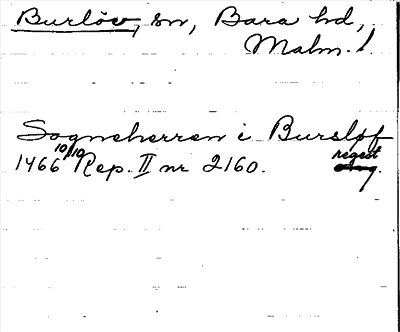 Burlöv, sn, Bara hd,
Malm. l.
Sogneherren i Bursløf
1466 10/10 Rep. II nr 2160. regest